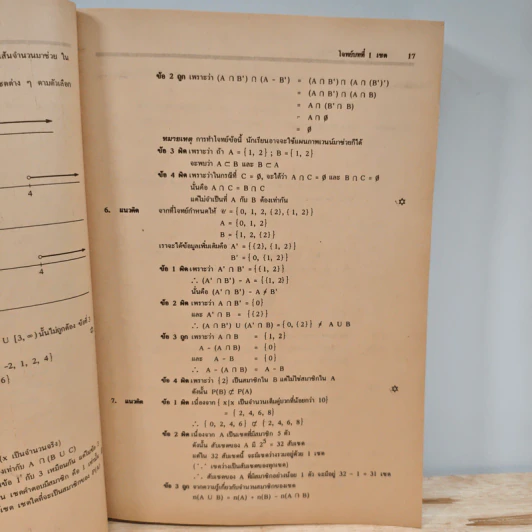 เส้นจำนวนมาช่วย ใน
เซตต่าง ๆ ตามตัวเลือก
4
4
∪ [3, ∞) นั้นไม่ถูกต้อง
-2, 1, 2, 4}
6}
{x เป็นจำนวนจริง)
เท่ากับ A ∩ (B ∪ C)
โจทย์บทที่ 1 เซต 17
ข้อ 2 ถูก เพราะว่า (A ∩ B') ∩ (A - B') = (A ∩ B') ∩ (A ∩ (B')')
= (A ∩ B') ∩ (A ∩ B)
= A ∩ (B' ∩ B)
- A ∩ ∅
= ∅
หมายเหตุ การทำโจทย์ข้อนี้ นักเรียนอาจจะใช้แผนภาพเวนน์มาช่วยก็ได้
ข้อ 3 ผิด เพราะว่า ถ้า A = {1, 2} ; B = {1, 2}
จะพบว่า A ⊂ B และ B ⊂ A
ข้อ 4 ผิด เพราะว่าในกรณีที่ C = ∅, จะได้ว่า A ∩ C = ∅ และ B ∩ C = ∅
นั่นคือ A ∩ C = B ∩ C
แต่ไม่จำเป็นที่ A กับ B ต้องเท่ากัน
6. แนวคิด จากที่โจทย์กำหนดให้ 𝒰 = {0, 1, 2, {2}, {1, 2}}
A = {0, 1, 2}
B = {1, 2, {2}}
เราจะได้ข้อมูลเพิ่มเติมคือ A' = {{2}, {1, 2}}
B' = {0, {1, 2}}
ข้อ 1 ผิด เพราะว่า A' ∩ B' = {{1, 2}}
∴ (A' ∩ B') - A = {{1, 2}}
นั่นคือ (A' ∩ B') - A ≠ B'
ข้อ 2 ผิด เพราะว่า A ∩ B' = {0}
และ A' ∩ B = {{2}}
∴ (A ∩ B') ∪ (A' ∩ B) = {0, {2}} ≠ A ∪ B
ข้อ 3 ถูก เพราะว่า A ∩ B = {1, 2}
A - (A ∩ B) = {0}
และ A - B = {0}
∴ A - (A ∩ B) = A - B
ข้อ 4 ผิด เพราะว่า {2} เป็นสมาชิกใน B แต่ไม่ใช่สมาชิกใน A
ดังนั้น P(B) ⊄ P(A)
7. แนวคิด ข้อ 1 ผิด เนื่องจาก { x|x เป็นจำนวนเต็มคู่บวกที่น้อยกว่า 10}
= {2, 4, 6, 8}
∴ {0, 2, 4, 6} ⊄ {2, 4, 6, 8}
ข้อ 2 ผิด เนื่องจาก A เป็นเซตที่มีสมาชิก 5 ตัว
ดังนั้น สับเซตของ A มี 2⁵ = 32 สับเซต
แต่ใน 32 สับเซตนี้ จะมีเซตว่างรวมอยู่ด้วย 1 เซต
(∵ เซตว่างเป็นสับเซตของทุกเซต)
∴ สับเซตของ A ที่มีสมาชิกอย่างน้อย 1 ตัว จะมีอยู่ 32 - 1 = 31 เซต
ข้อ 3 ถูก จากความรู้เกี่ยวกับจำนวนสมาชิกของเซต
n(A ∪ B) = n(A) + n(B) - n(A ∩ B)